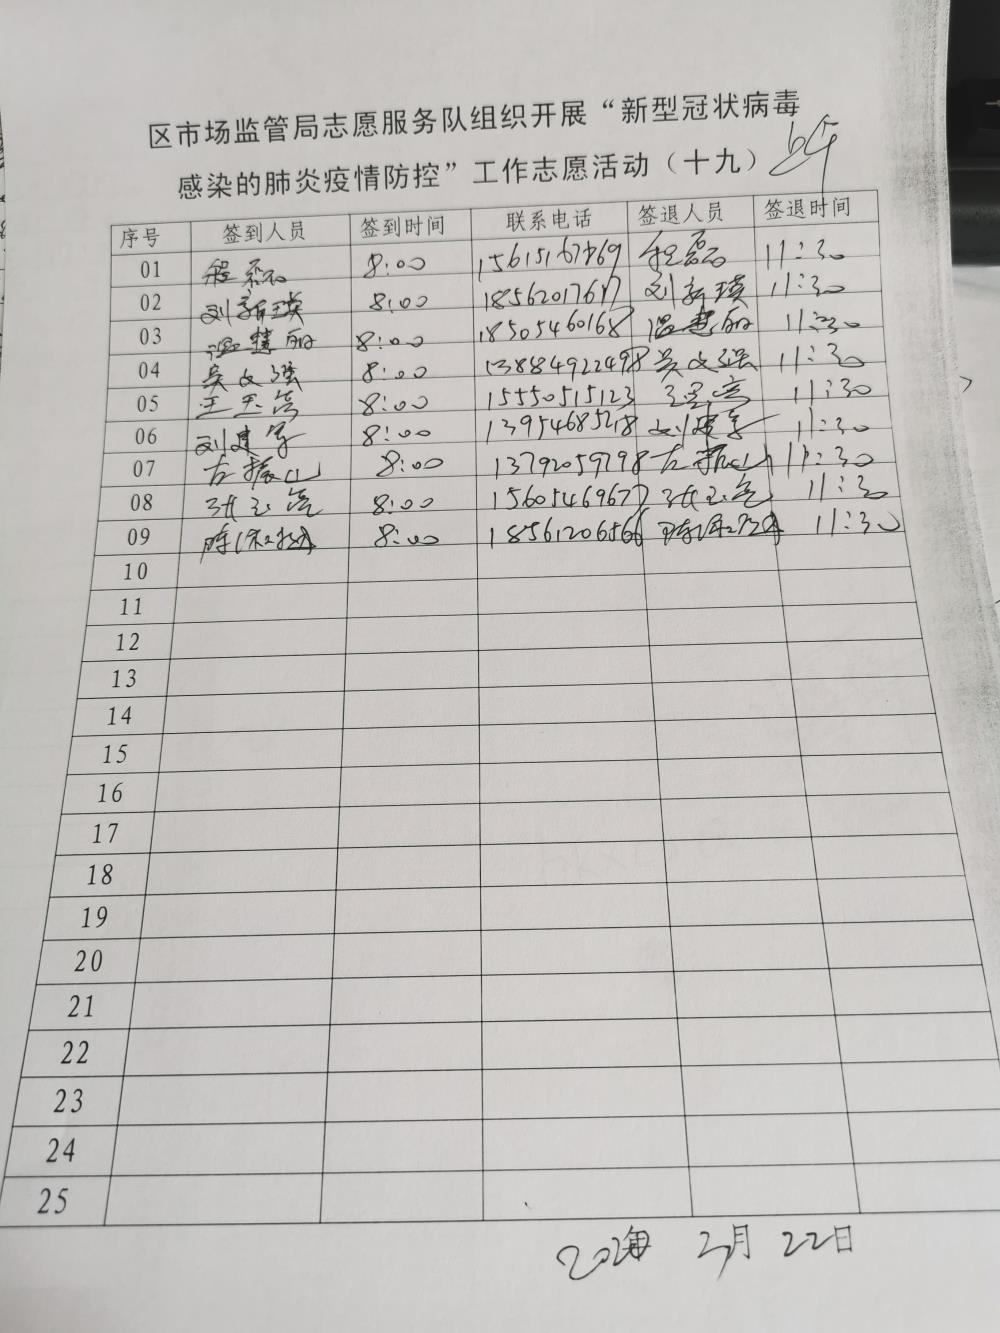 区市场监管局志愿服务队组织开展“新型冠状病毒
感染的肺炎疫情防控”工作志愿活动（十九）
序号 签到人员 签到时间 联系电话 签退人员 签退时间
01 程磊 8:00 程磊 11:30
02 刘新瑛 8:00 18562017617 刘新瑛 11:30
03 温慧丽 8:00 18505460168 温慧丽 11:30
04 吴文强 8:00 13884922498 吴文强 11:30
05 王玉亮 8:00 15550515123 11:30
06 刘建军 8:00 13954685218 刘建军 11:30
07 左振山 8:00 13792059798 左振山 11:30
08 8:00 15605469677 11:30
09 8:00 18561206566 11:30
10
11
12
13
14
15
16
17
18
19
20
21
22
23
24
25
月 22日